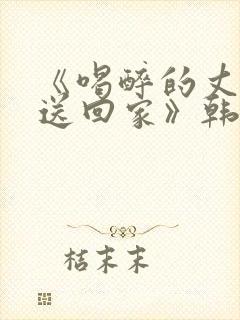 《喝醉的丈
送回家》韩
桔末末